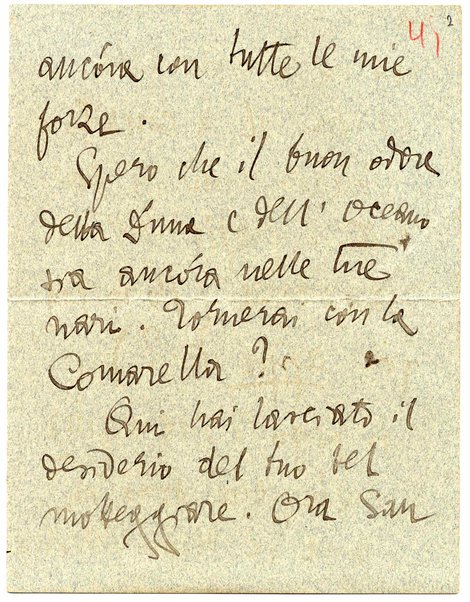 4) 2
ancóra con tutte le mie
forze.
Spero che il buon odore
della Duna e dell' Oceano
sia ancóra nelle tue
nari. Tornerai con la
Comarella?
Qui hai lasciato il
desiderio del tuo bel
motteggiare. Ora San